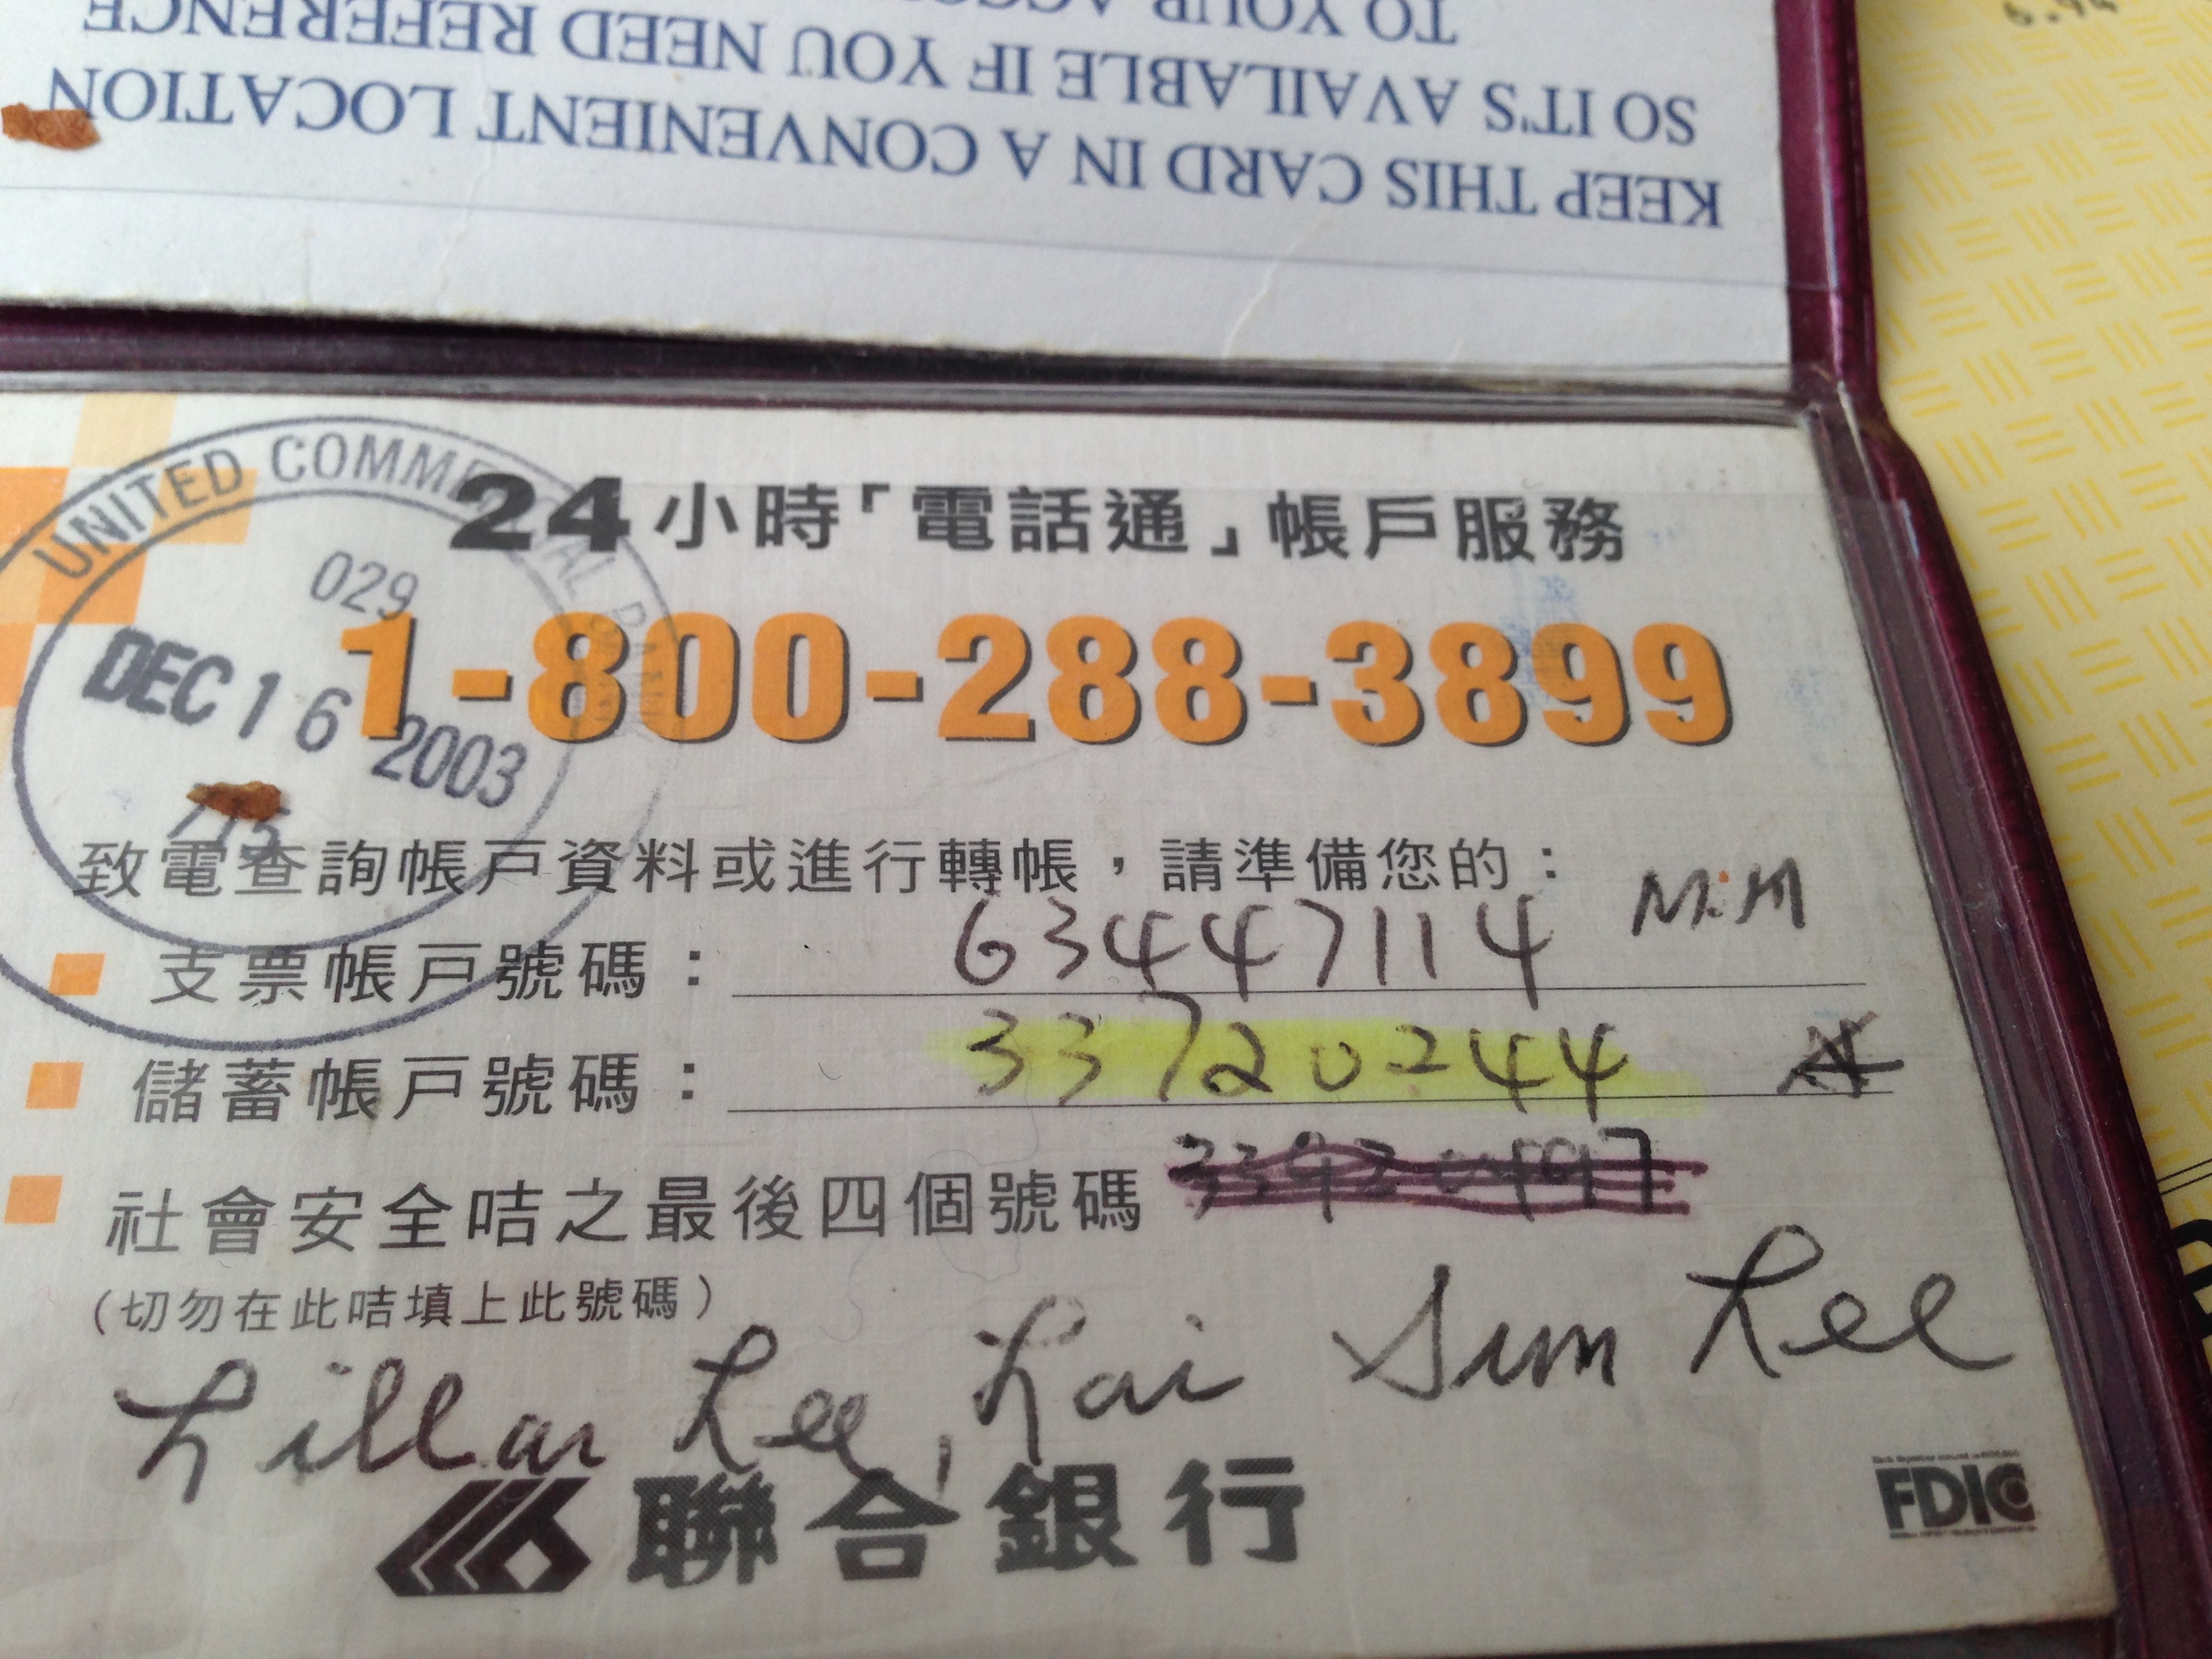 KEEP THIS CARD IN A CONVENIENT LOCATION
SO IT'S AVAILABLE IF YOU NEED REFERENCE
TO YOUR
UNITED COMMERCIAL BANK
029
DEC 16 2003
24小時「電話通」帳戶服務
1-800-288-3899
致電查詢帳戶資料或進行轉帳，請準備您的：
M.M
支票帳戶號碼： 63447114
儲蓄帳戶號碼： 33720244
社會安全咭之最後四個號碼
（切勿在此咭填上此號碼）
Lillar Lee, Lai Sum Lee
聯合銀行
FDIC